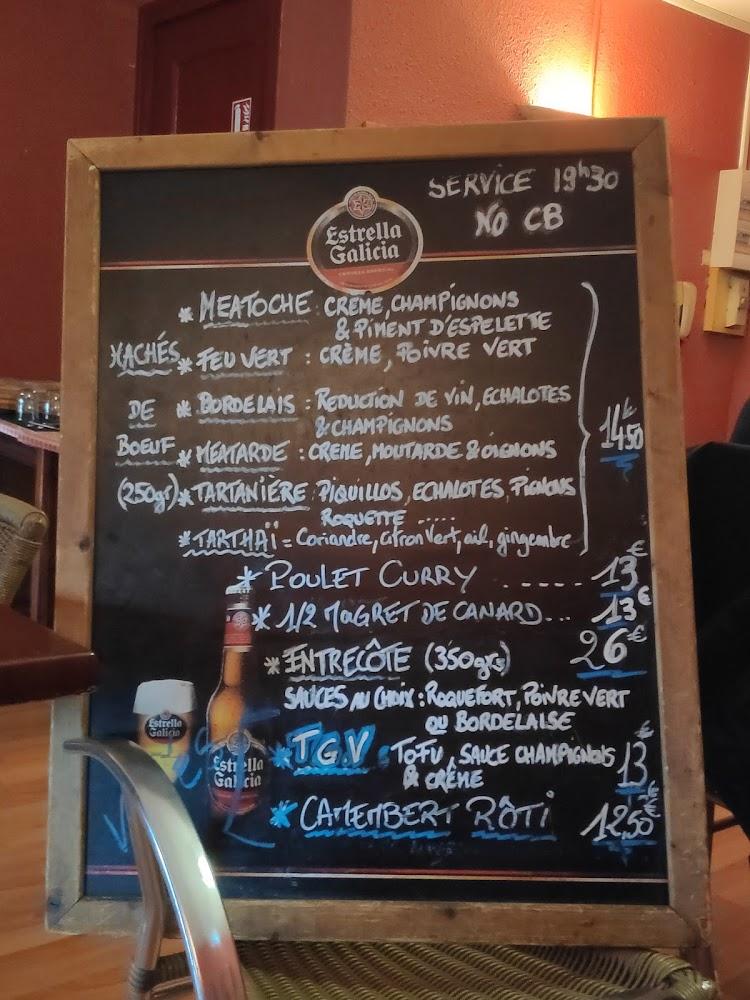 SERVICE 19h30
NO CB
Estrella
Galicia
CERVEZA ESPECIAL
* MEATOCHE : CRÈME, CHAMPIGNONS
& PIMENT D'ESPELETTE
HACHÉS * FEU VERT : CRÈME, POIVRE VERT
DE * BORDELAIS : REDUCTION DE VIN, ECHALOTES
& CHAMPIGNONS
14€50
BOEUF * MEATARDE : CRÈME, MOUTARDE & OIGNONS
(250gr) * TARTANIÈRE : PIQUILLOS, ECHALOTES, PIGNONS
ROQUETTE .....
* TARTHAÏ = Coriandre, citron vert, ail, gingembre
* POULET CURRY ..... 13€
* 1/2 MAGRET DE CANARD... 13€
* ENTRECÔTE (350grs) 26€
SAUCES AU CHOIX : ROQUEFORT, POIVRE VERT
OU BORDELAISE
* T.G.V : TOFU, SAUCE CHAMPIGNONS 13€
& CRÈME
* CAMEMBERT RÔTI 12,50€
Estrella
Galicia
Estrella
Galicia